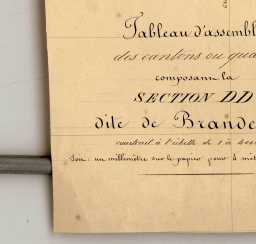 Tableau d'assembl
des cantons ou qua
composant la
SECTION DD
dite de Brande
construit à l'échelle de 1 à
Soit : un millimètre sur le papier pour 4 mèt